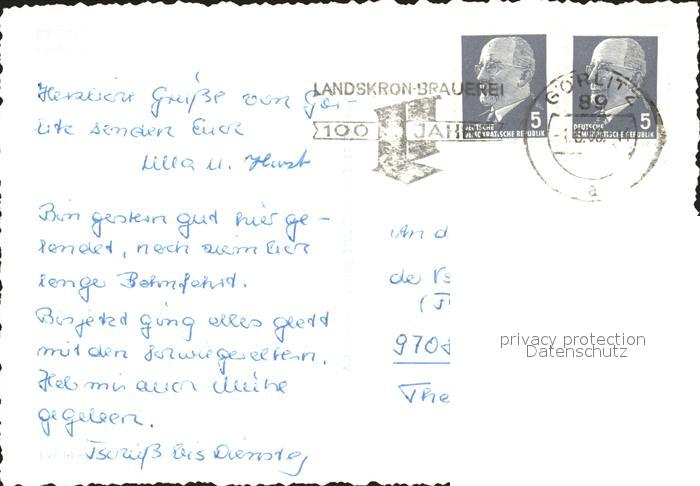 Herzliche Grüße von Gör-
litz senden Euch
Lilla u. Horst
Bin gestern gut hier ge-
landet, nach ziemlich
lange Bahnfahrt.
Bis jetzt ging alles glatt
mit den Schwiegereltern.
Hab mir auch Mühe
gegeben.
Tschüß bis Dienstag
LANDSKRON-BRAUEREI
100 JAHRE
GÖRLITZ
89
a
5
DEUTSCHE
DEMOKRATISCHE REPUBLIK
5
DEUTSCHE
DEMOKRATISCHE REPUBLIK
An d
de
970
The
privacy protection
Datenschutz